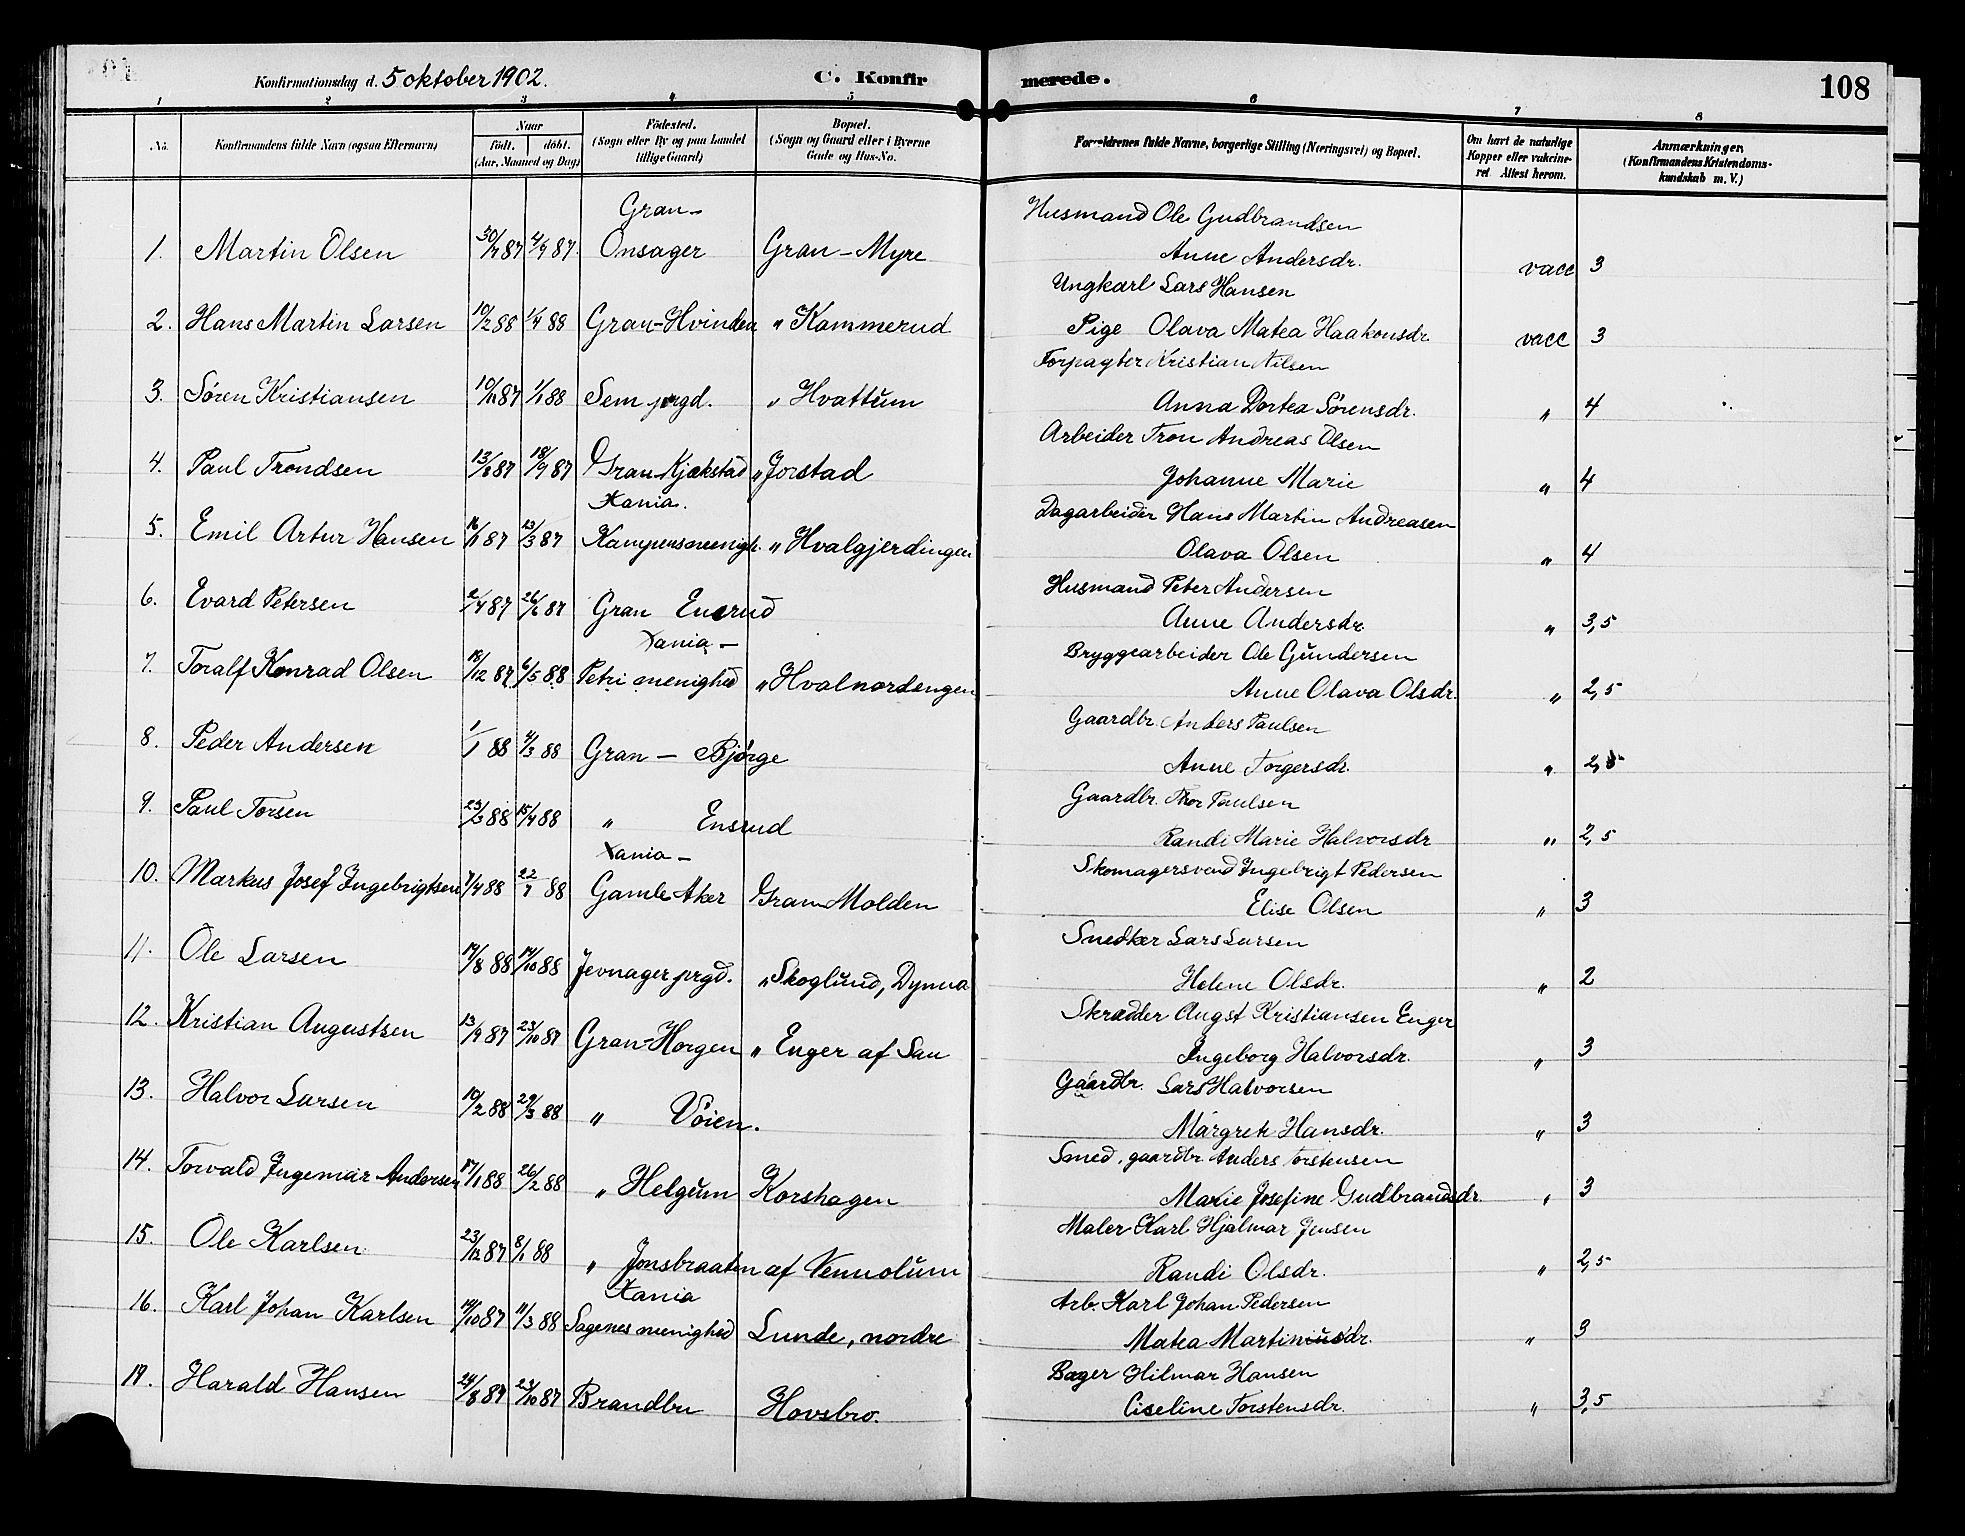 Konfirmationsdag d. 5 oktober 1902. C. Konfirmerede. 108
1 2 3 4 5 6 7 8
No. Konfirmandens fulde Navn (ogsaa Efternavn) Naar födt. döbt. (Aar, Maaned og Dag) Födested. (Sogn eller By og paa Landet tillige Gaard) Bopæl. (Sogn og Gaard eller i Byerne Gade og Hus-No. Forældrenes fulde Navne, borgerlige Stilling (Næringsvei) og Bopæl. Om havt de naturlige Kopper eller vakcineret. Attest herom. Anmærkninger. (Konfirmandens Kristendomskundskab m. V.)
Gran- Husmand Ole Gudbrandsen
1. Martin Olsen 30/7 87 4/9 87. Onsager Gran-Myre Anne Andersdr. vacc 3
Ungkarl Lars Hansen
2. Hans Martin Larsen 10/2 88 1/4 88 Gran-Hvinden " Kammerud Pige Olava Matea Haakonsdr. vacc 3
Forpagter Kristian Nilsen
3. Søren Kristiansen 10/11 87 1/1 88 Sem prgd. " Hvattum Anna Dortea Sørensdr. " 4
Arbeider Tron Andreas Olsen
4. Paul Trondsen 13/8 87 18/9 87 Gran Kjækstad " Jorstad Johanne Marie " 4
Xania. Dagarbeider Hans Martin Andreasen
5. Emil Artur Hansen 16/1 87 13/3 87 Kampensmenigh. " Hvalgjerdingen Olava Olsen " 4
Husmand Peter Andersen
6. Evard Petersen 2/4 87 26/6 87 Gran Ensrud Anne Andersdr " 3,5
Xania- Bryggearbeider Ole Gundersen
7. Toralf Konrad Olsen 18/12 87 6/5 88 Petri menighed " Hvalnordengen Anne Olava Olsdr. " 2,5
Gaardbr. Anders Paulsen
8. Peder Andersen 1/1 88 4/3 88 Gran - Bjørge Anne Torgersdr. " 2,5
Gaardbr. Thor Paulsen
9. Paul Torsen 23/2 88 15/4 88 " Ensrud Randi Marie Halvorsdr " 2,5
Xania- Skomagersvend Ingebrigt Pedersen
10. Markus Josef Ingebrigtsen 7/4 88 22/7 88 Gamle Aker Gran-Molden Elise Olsen " 3
Snedker Lars Larsen
11. Ole Larsen 17/8 88 14/10 88 Jevnager prgd. " Skoglund, Dynna Helene Olsdr. " 2
Skrædder Augst Kristiansen Enger
12. Kristian Augustsen 13/9 87 23/10 87 Gran-Horgen " Enger af San Ingeborg Halvorsdr. " 3
Gaardbr. Lars Halvorsen
13. Halvor Larsen 10/2 88 24/3 88 " Vöien. Margrete Hansdr. " 3
Smed, gaardbr Anders Torstensen
14. Torvald Ingemar Andersen 17/1 88 26/2 88 " Helgum Korshagen Marie Josefine Gudbrandsdr. " 3
Maler Karl Hjalmar Jensen
15. Ole Karlsen 23/12 87 8/1 88 " Jonsbraaten af Vennolum Randi Olsdr. " 2,5
Xania Arb. Karl Johan Pedersen
16. Karl Johan Karlsen 14/10 87 11/3 88 Sagenes menighed Lunde, nordre Matea Martiniusdr. " 3
Bager Hilmar Hansen
17. Harald Hansen 24/8 87 23/10 87 Brandbu Hovsbro. Ciseline Torstensdr. " 3,5